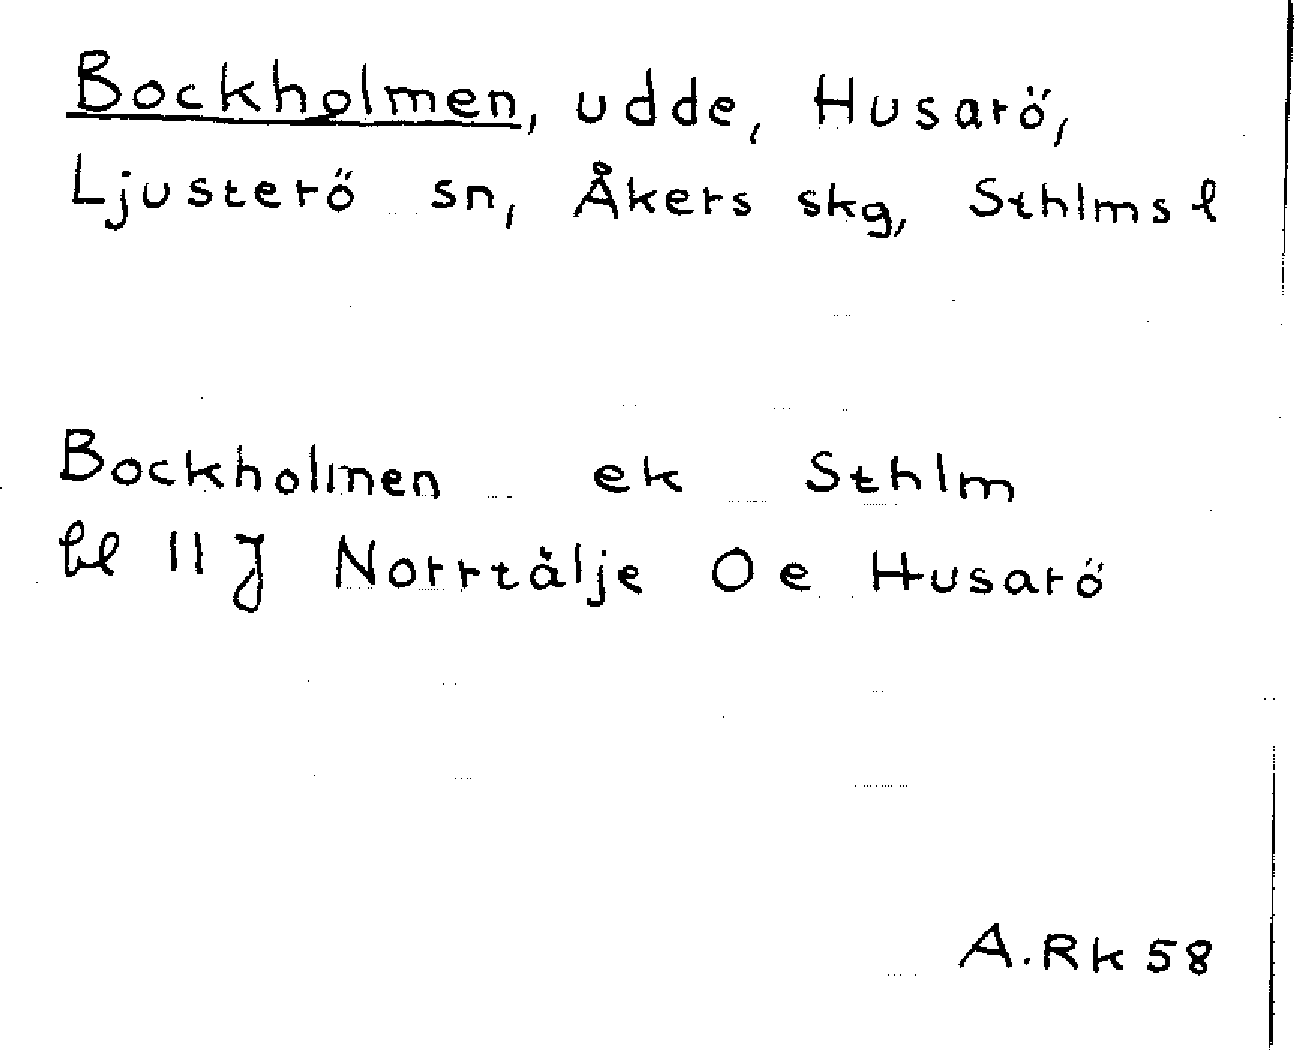 Bockholmen, udde, Husarö,
Ljusterö sn, Åkers skg, Sthlms l
Bockholmen ek Sthlm
bl 11 J Norrtälje O e Husarö
A.Rk 58